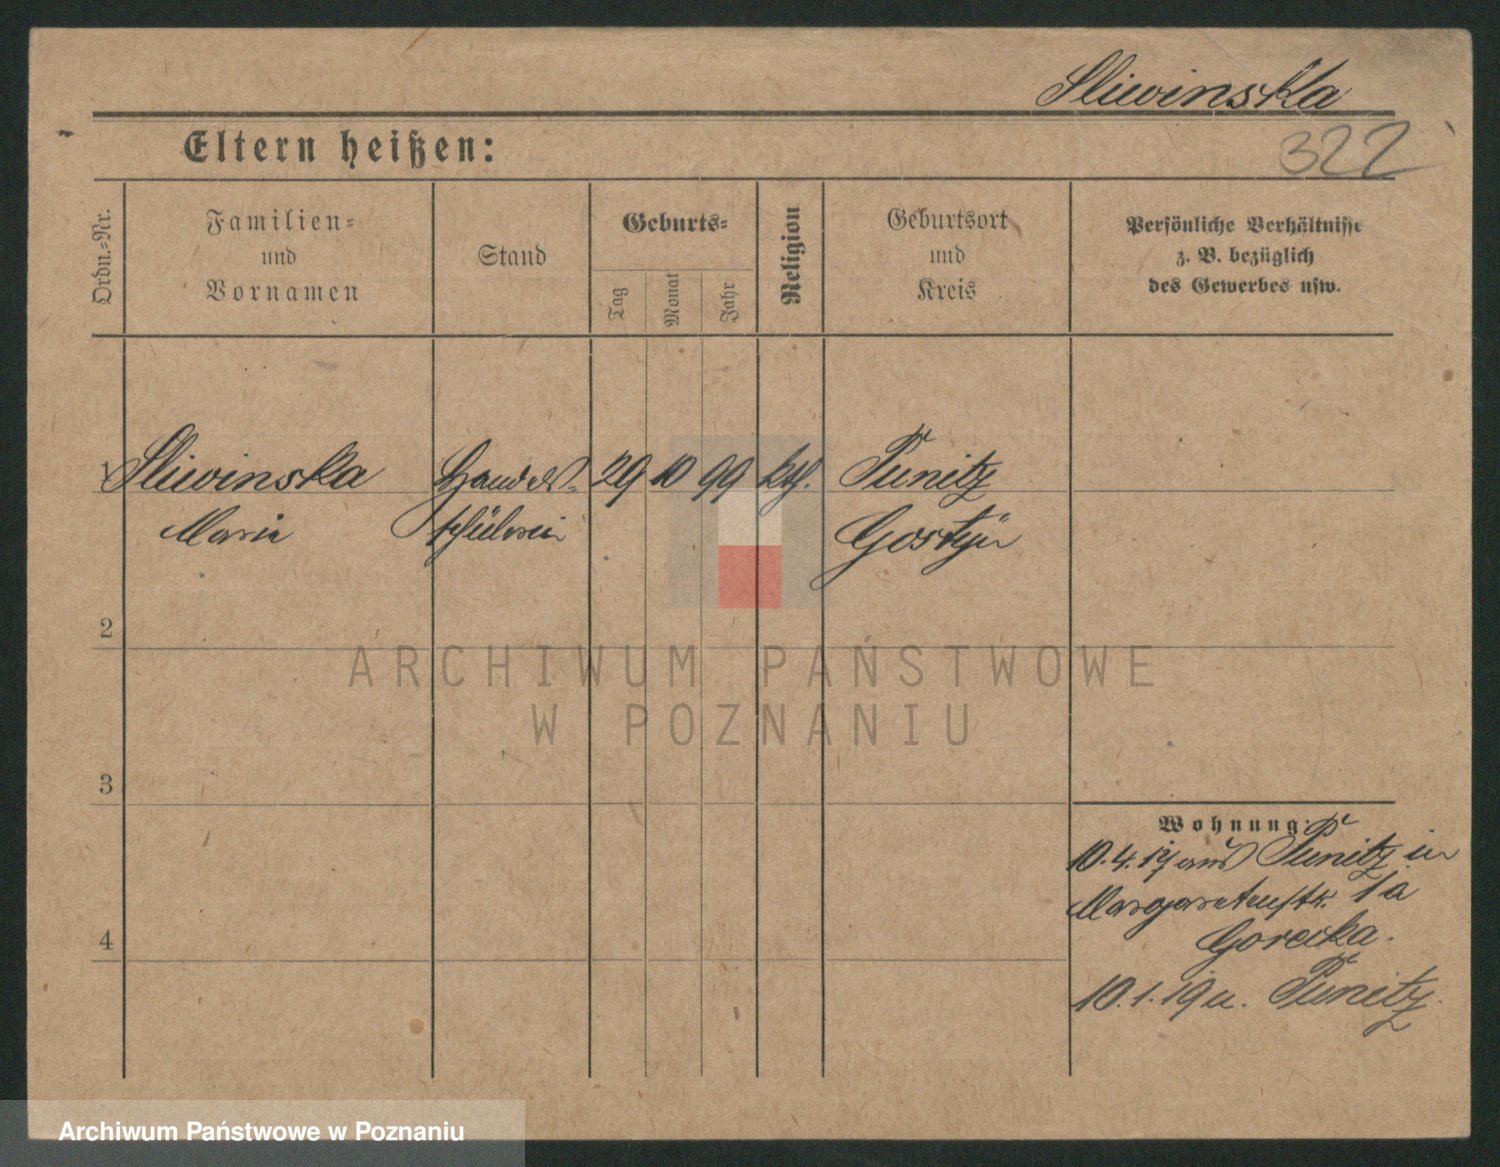 Sliwinska
322
Eltern heißen:
Ordn.-Nr.
Familien-
und
Vornamen
Stand
Geburts-
Tag
Monat
Jahr
Religion
Geburtsort
und
Kreis
Persönliche Verhältnisse
z. B. bezüglich
des Gewerbes usw.
1 Sliwinska Handels- 29 10 99 kth. Punitz
Maria schülerin Gostyn
2
3
4
Wohnung:
10.4.17 aus Punitz in
Margaretenstr. 1a
Gorecka.
10.1.19 n. Punitz.
ARCHIWUM PAŃSTWOWE
W POZNANIU
Archiwum Państwowe w Poznaniu